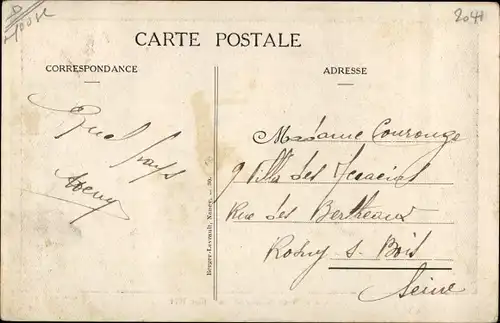 2041
CARTE POSTALE
CORRESPONDANCE
ADRESSE
Quel pays
Madame Courouge
9 Villa des Acacias
Rue des Bertheaux
Rosny s. Bois
Seine
Berger-Levrault, Nancy. — 20.